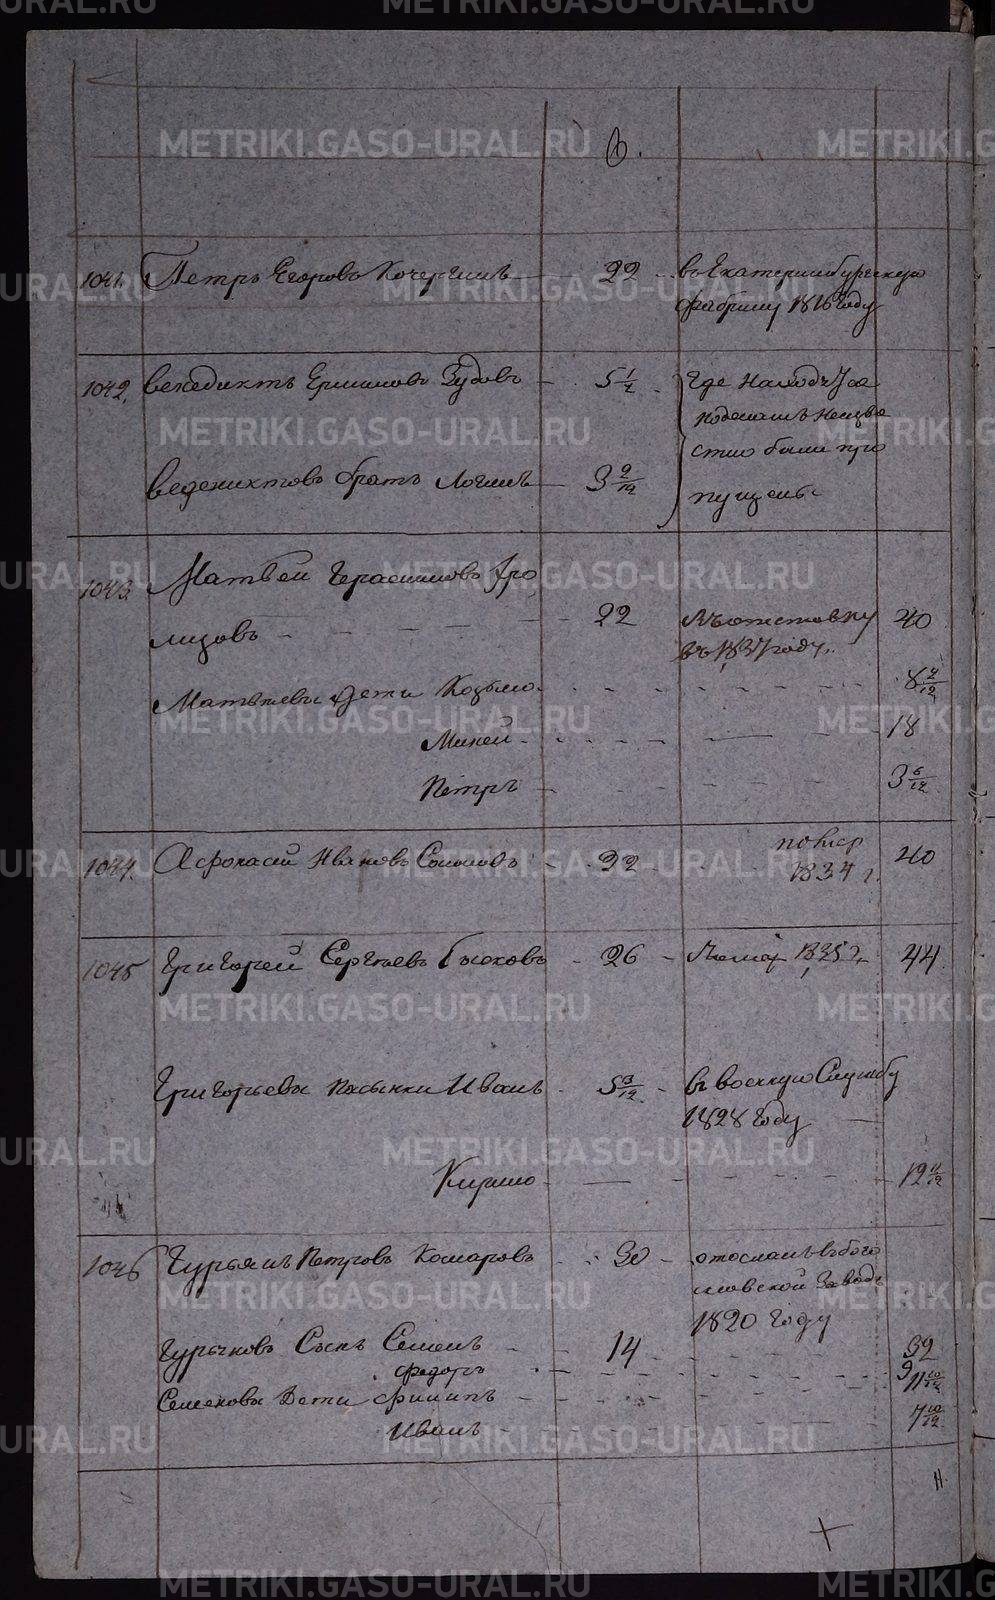 1041. Петръ Егоровъ Кочергинъ 22 въ Екатеринбургскую
фабрику 1816 году
1042. Венедиктъ Ермиловъ Зудовъ 5 1/2 Где находятся
неизве
стно были про
пущены
Веденихтовъ братъ Логинъ 3 9/12
1043. Матвей Герасимовъ Гро
мзовъ 22 въ отставку 40
въ 1837 году.
Матвеевы дети Козьма 8 4/12
Михей 18
Петръ 3 6/12
1044. Афонасей Ивановъ 22 помер 40
1834 г.
1045 Григорей Сергеевъ Быковъ 26 Помер 1835 г 44
Григорьевы пасынки Иванъ 5 3/12 въ военную Службу
1828 году
Кирило 12 11/12
1046 Гурьянъ Петровъ Комаровъ 30 отосланъ въ бого
словской Заводъ
1820 году
Гурьяновъ Сынъ Семенъ 14 32
Федоръ 11 10/12
Семеновы Дети Филипъ 7 10/12
Иванъ
METRIKI.GASO-URAL.RU